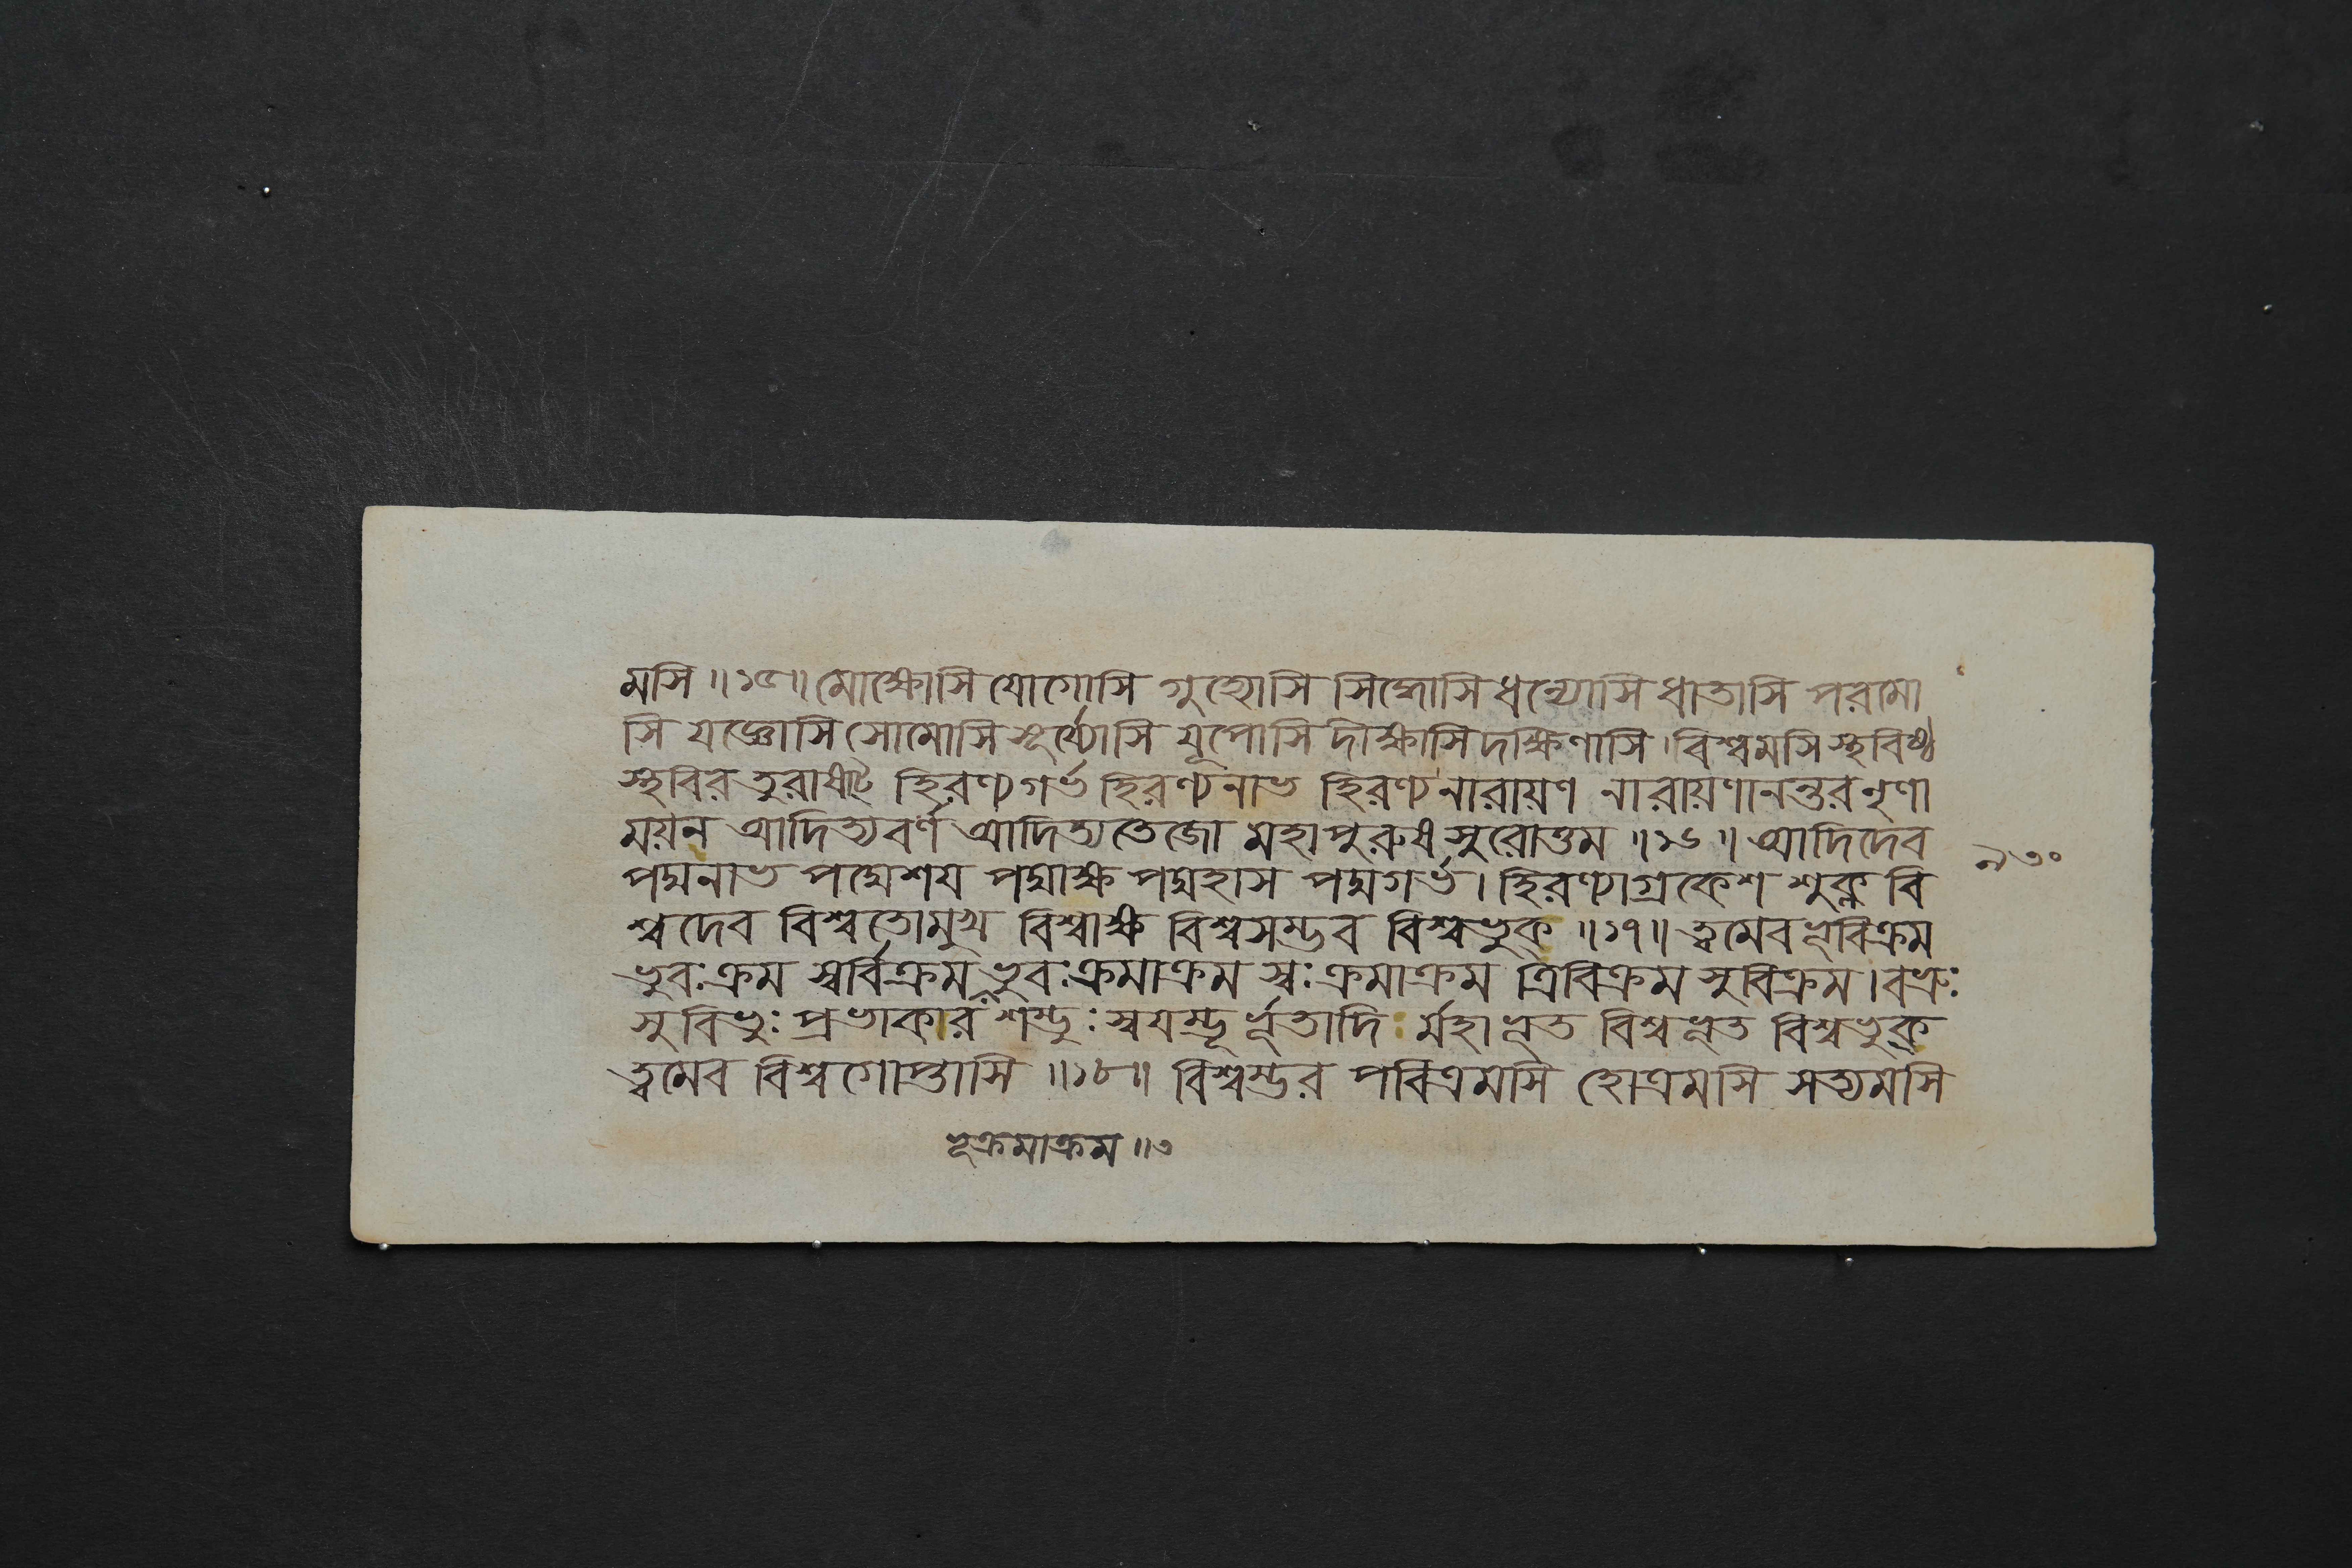 মসি ॥১৫॥ মোক্ষোসি যোগোসি গুহ্যোসি সিদ্ধোসি ধন্যোসি ধাতাসি পরমো
সি যজ্ঞোসি সোমোসি সূর্য্যোসি যূপোসি দীক্ষাসি দক্ষিণাসি। বিশ্বমসি স্থবিষ্ঠ
স্থবির তুরাষাট্ হিরণ্যগর্ভ হিরণ্যনাভ হিরণ্যনারায়ণ নারায়ণানন্তর নৃণা
ময়ন আদিত্যবর্ণ আদিত্যতেজো মহাপুরুষ সুরোত্তম ॥১৬॥ আদিদেব
পদ্মনাভ পদ্মেশয পদ্মাক্ষ পদ্মহাস পদ্মগর্ভ। হিরণ্যাগ্রকেশ শুক্ল বি
শ্বদেব বিশ্বতোমুখ বিশ্বাক্ষ বিশ্বসম্ভব বিশ্বভুক্ ॥১৭॥ ত্বমেব ভূবিক্রম
ভুবঃক্রম স্বর্বিক্রম ভুবঃক্রমাক্রম স্বঃক্রমাক্রম ত্রিবিক্রম সুবিক্রম। বভ্রুঃ
সুবিভুঃ প্রভাকারঃ শম্ভুঃ স্বযম্ভূর্ভূতাদি র্মহাভূত বিশ্বভূত বিশ্বভুক্
ত্বমেব বিশ্বগোপ্তাসি ॥১৮॥ বিশ্বম্ভর পবিত্রমসি হোত্রমসি সত্যমসি
ভূক্রমাক্রম ॥৩